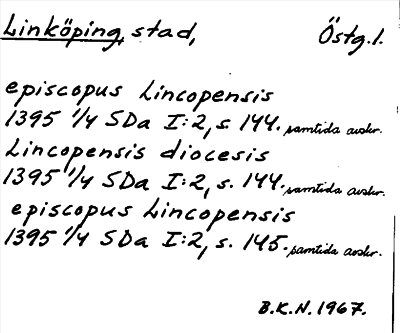 Linköping, stad, Östg.l.
episcopus Lincopensis
1395 1/4 SDa I:2, s. 144. samtida avskr.
Lincopensis diocesis
1395 1/4 SDa I:2, s. 144. samtida avskr.
episcopus Lincopensis
1395 1/4 SDa I:2, s. 145. samtida avskr.
B.K.N. 1967.